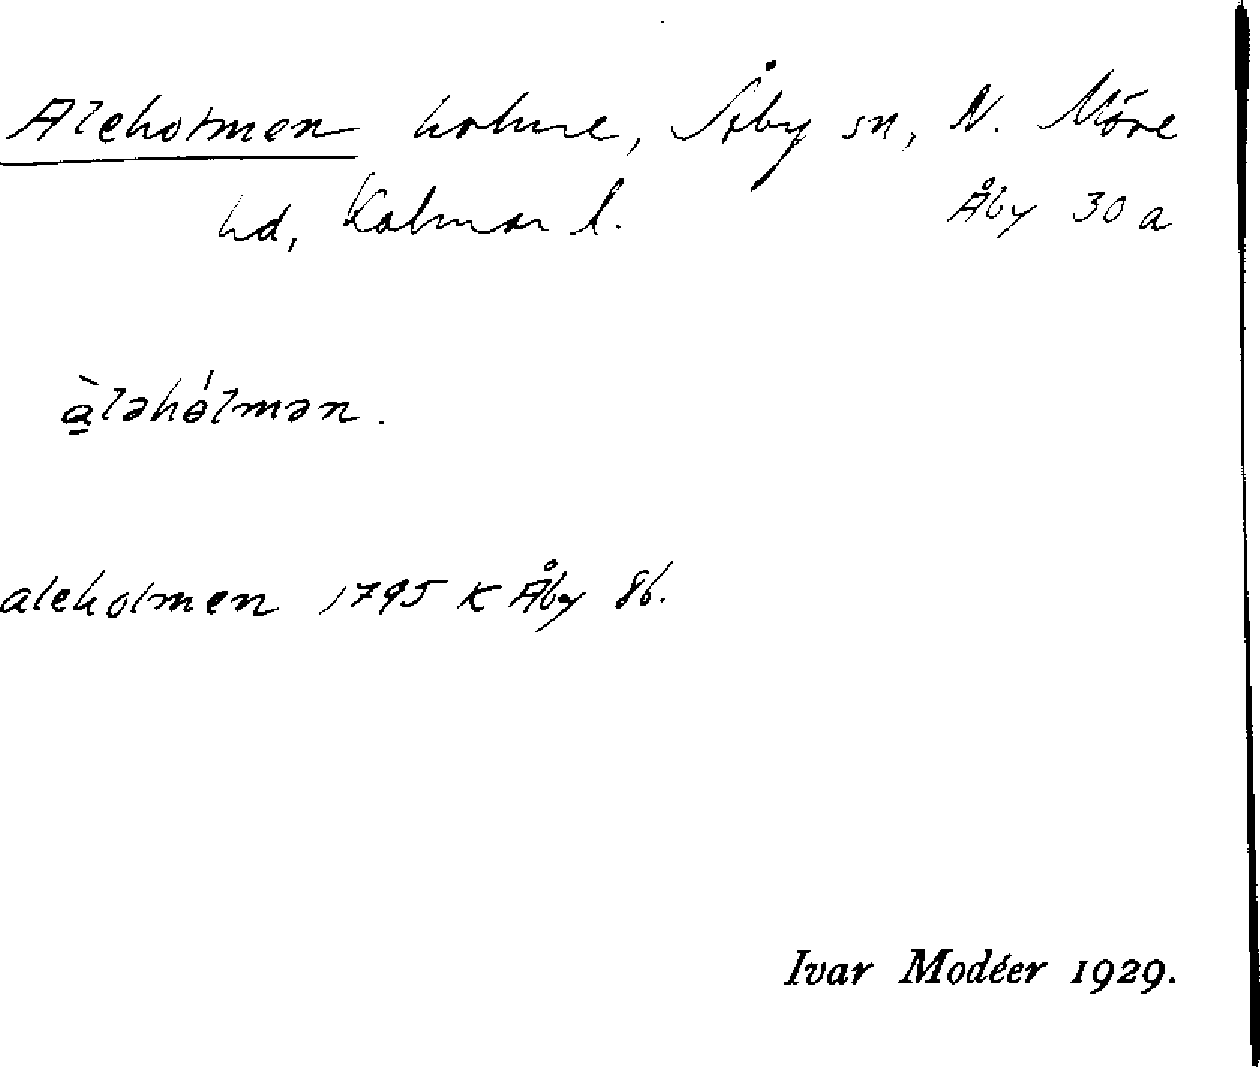 Aleholmen holme, Åby sn, N. Möre
hd, Kalmar l. Åby 30 a
àləhólmən.
aleholmen 1795 K Åby 86.
Ivar Modéer 1929.